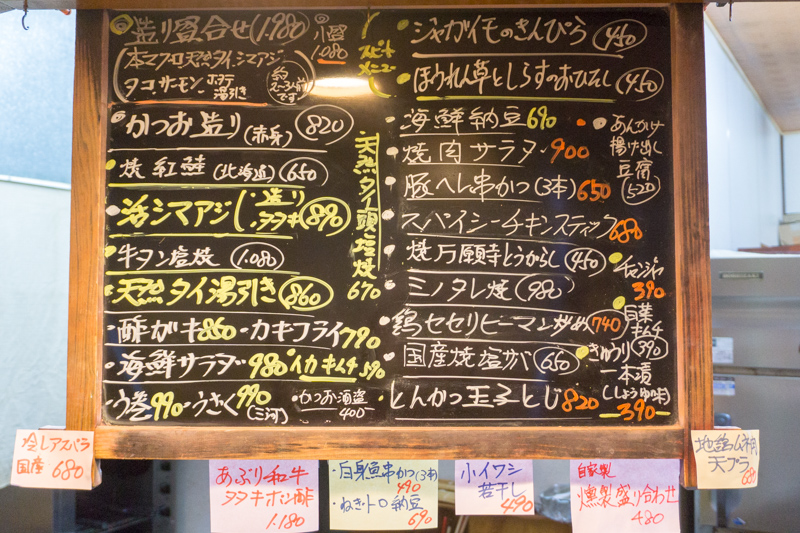 造り盛合せ 1.980 小盛 1.080
本マグロ 天然タイ シマアジ
タコ サーモン ホタテ 湯引き
約2〜3人前です
スピードメニュー
かつお造り(赤身) 820
焼紅鮭(北海道) 650
活シマアジ 造り・タタキ 890
牛タン塩焼 1.080
天然タイ湯引き 860
天然タイ頭塩焼 670
酢ガキ 860・カキフライ 790
海鮮サラダ 980・イカキムチ 390
う巻 990・うざく 990(三河)
・かつお酒盗 400
ジャガイモのきんぴら 450
ほうれん草としらすのおひたし 450
海鮮納豆 690
焼肉サラダ 900
豚ヘレ串かつ(3本) 650
スパイシーチキンスティック 680
焼万願寺とうがらし 450
ミノタレ焼 980
鶏セセリピーマン炒め 740
国産焼塩サバ 650
とんかつ玉子とじ 820
あんかけ揚げ出し豆腐 520
チャンジャ 390
白菜キムチ 390
きゅうり一本漬(しょうゆ味) 390
冷しアスパラ
国産 680
あぶり和牛
タタキポン酢
1.180
・白身魚串かつ(3本) 490
・ねぎトロ納豆 690
小イワシ
若干し
490
自家製
燻製盛り合わせ
480
地鶏ムネ
天プラ